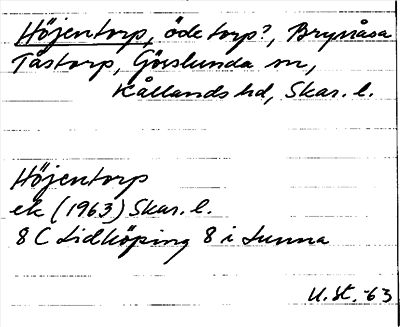 Höjentorp, öde torp?, Brynåsa
Tåstorp, Gösslunda sn,
Kållands hd, Skar. l.
Höjentorp
ek (1963) Skar. l.
8 C Lidköping 8 i Sunna
U. St. -63